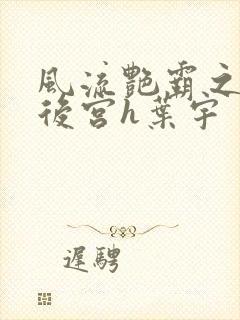 風流艷霸之
後宮h葉宇
遲騁